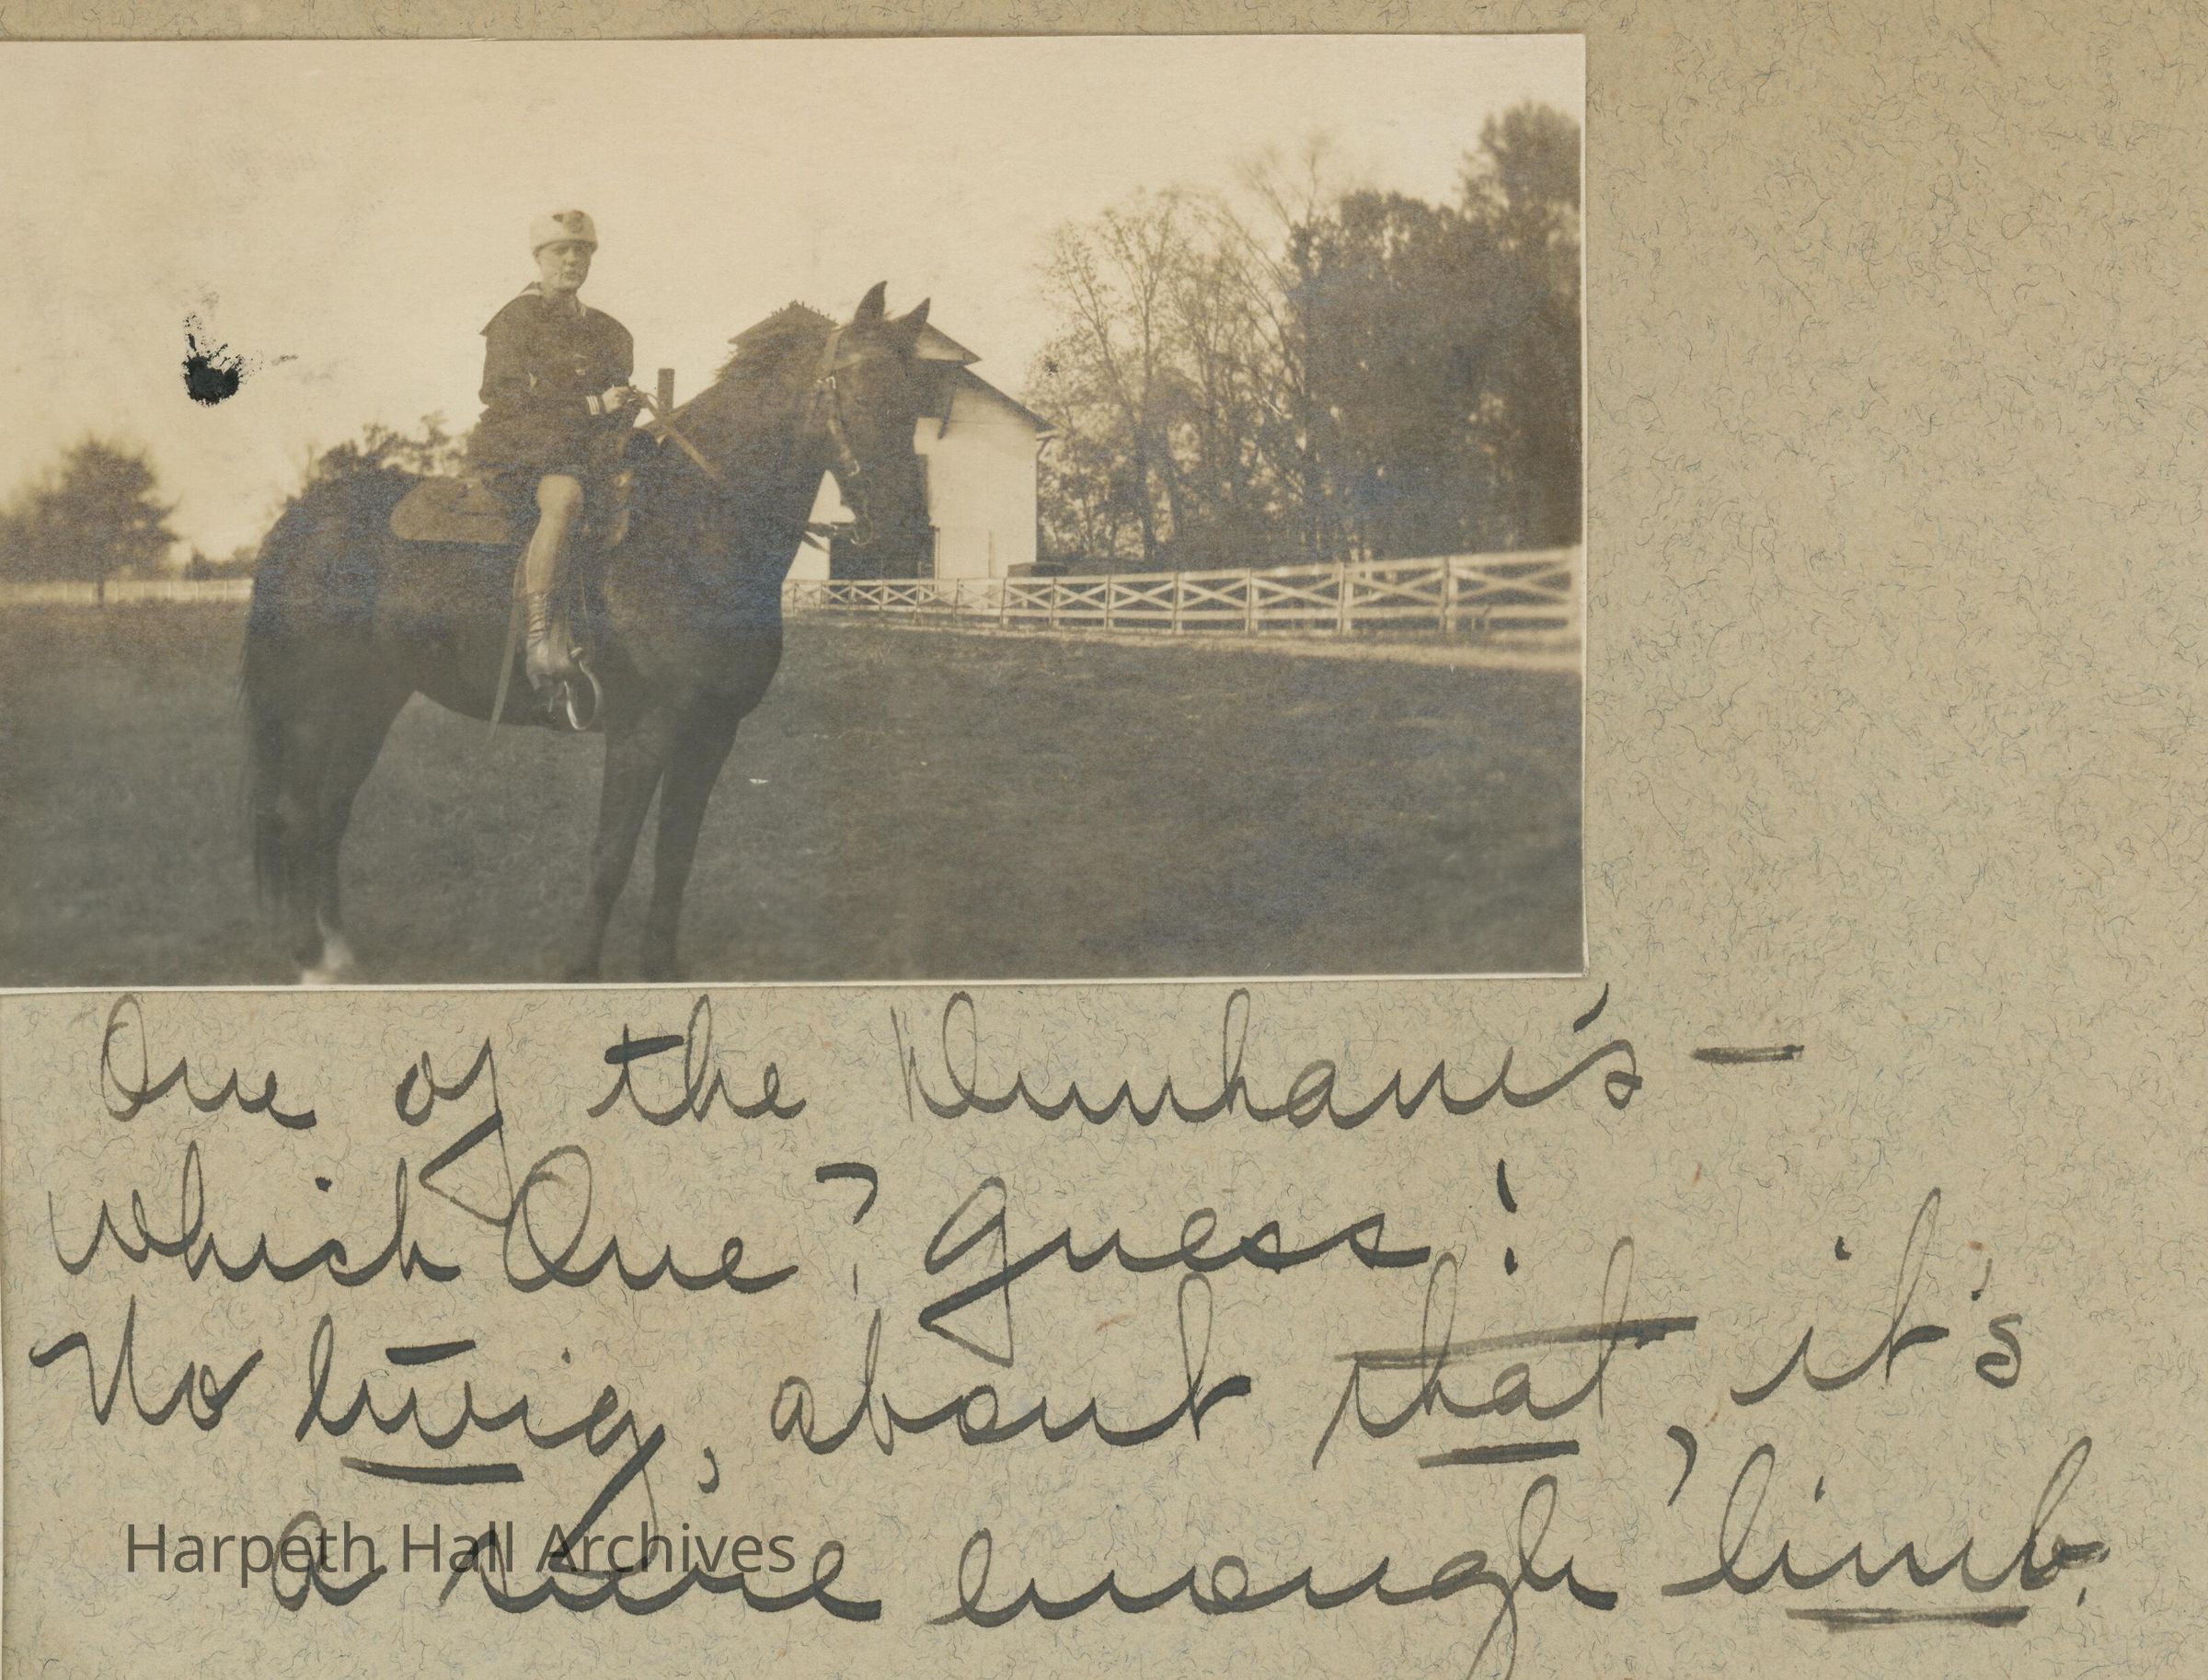 One of the Dunham's —
Which One? Guess!
No twig, about that, it's
a sure enough limb.
Harpeth Hall Archives